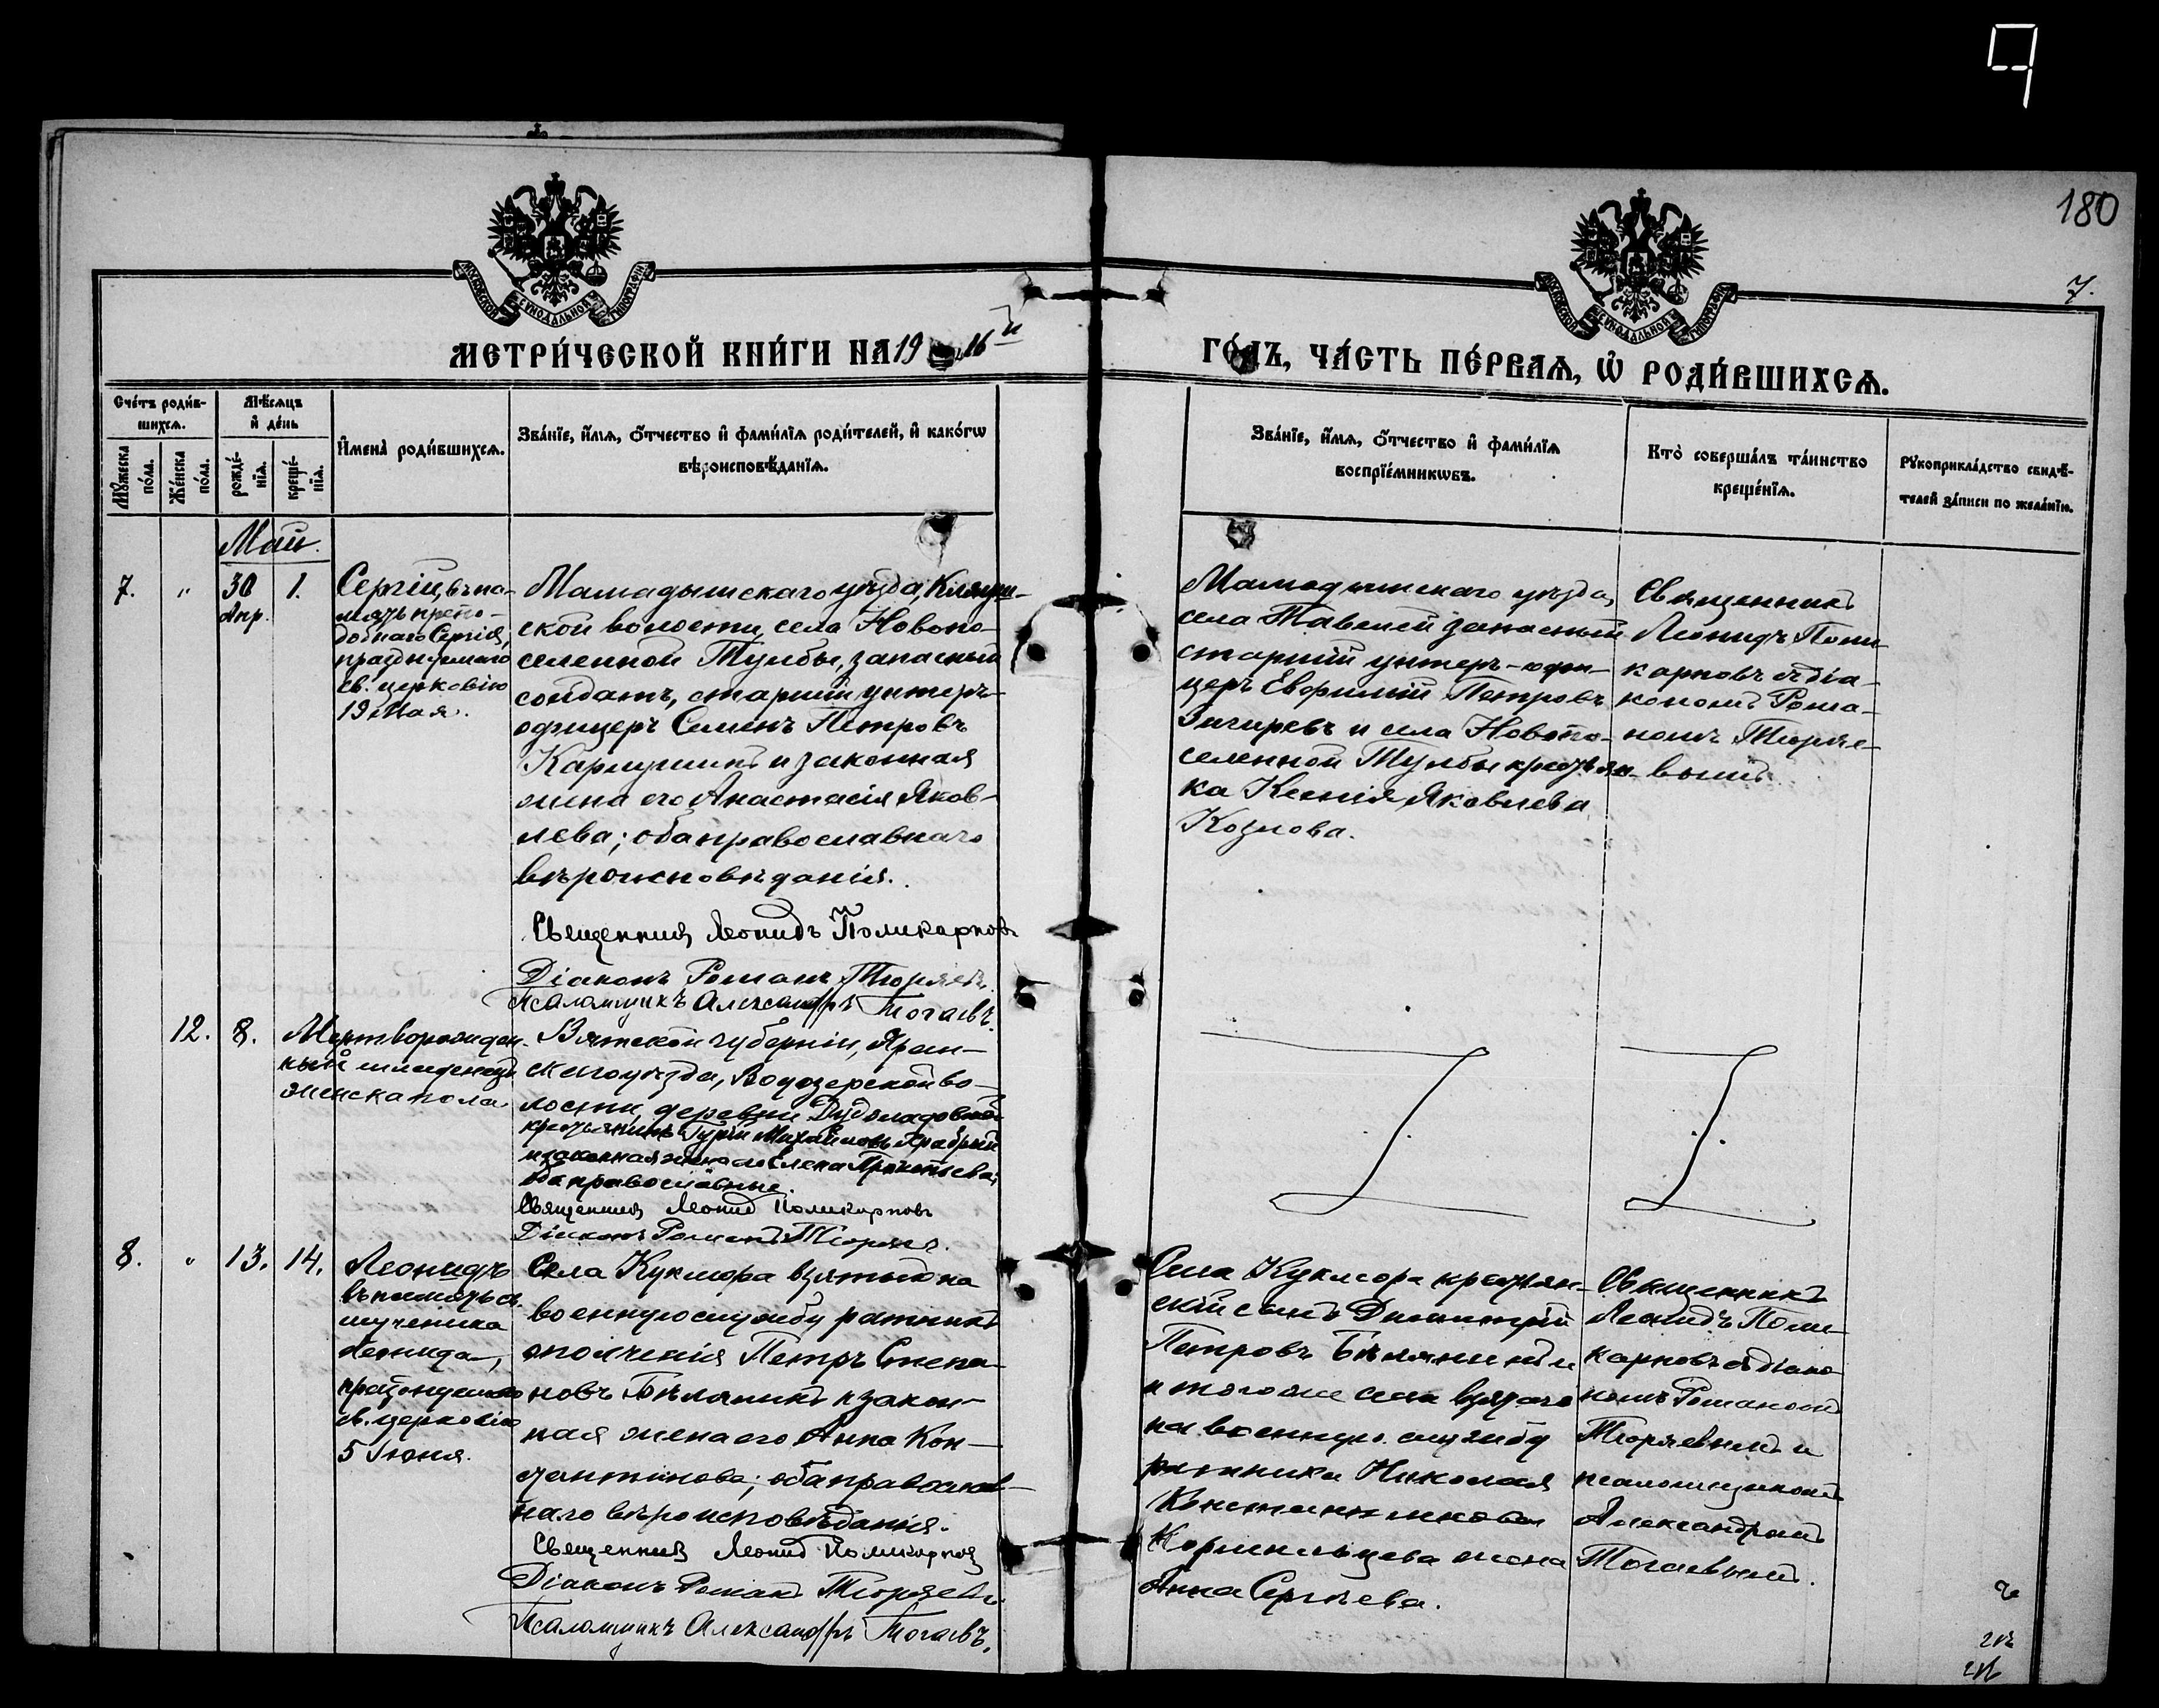 180
7.
МЕТРИ́ЧЕСКОЙ КНИ́ГИ НА 1916й
ГО́ДЪ, ЧА́СТЬ ПЕ́РВАѦ, Ѡ҆ РОДИ́ВШИХСѦ.
Сче́тъ роди́в-
шихсѧ.
Му́жеска по́ла.
Же́нска по́ла.
Мѣ́сѧцъ и҆ де́нь
рожде́-
нїѧ.
креще́-
нїѧ.
И҆мена̀ роди́вшихсѧ.
Зва́нїе, и҆́мѧ, ѻ҆́тчество и҆ фами́лїѧ роди́телей, и҆ како́гѡ
вѣроисповѣ́данїѧ.
Зва́нїе, и҆́мѧ, ѻ҆́тчество и҆ фами́лїѧ
воспрїе́мникѡвъ.
Кто̀ соверша́лъ та́инство
креще́нїѧ.
Рꙋкоприкла́дство свидѣ́-
телей за́писи по жела́нїю.
Май.
7.
"
30
Апр.
1.
Сергій, въ па-
мять препо-
добнаго Сергія,
празднуемаго
св. церковію
19 Мая.
Мамадышскаго уѣзда,
ской волости, села Новопо-
селенной Тулбы, запасный
солдатъ, старшій унтеръ-
офицеръ Семенъ Петровъ
и законная
жена его Анастасія Яков-
лева; оба православнаго
вѣроисповѣданія.
Священникъ Леонидъ Поликарповъ
Діаконъ Романъ
Псаломщикъ Александръ Тогаевъ.
Мамадышскаго уѣзда,
села Тавелей запасный
старшій унтеръ-офи-
церъ Евфимій Петровъ
и села Новопо-
селенной Тулбы крестьян-
ка Ксенія Яковлева
Козлова.
Священникъ
Леонидъ Поли-
карповъ съ діа-
кономъ Рома-
номъ Тюряе-
вымъ.
12.
8.
Мертворожден-
ный младенецъ
женска пола.
Вятской губерніи, Яран-
скаго уѣзда, Водозерской во-
лости, деревни
крестьянинъ Гурій Михайловъ Храбрый
и законная жена его Елена
оба православные.
Священникъ Леонид Поликарповъ
Діаконъ Романъ Тюряев.
8.
"
13.
14.
Леонидъ
въ память св.
мученика
Леонида,
празднуемаго
св. церковію
5 Іюня.
Села Кукмора взятый на
военную службу ратникъ
ополченія Петръ Степа-
новъ Бѣлянинъ и закон-
ная жена его Анна Кон-
стантинова; оба православ-
наго вѣроисповѣданія.
Священникъ Леонид Поликарповъ
Діаконъ Романъ Тюряевъ.
Псаломщикъ Александръ Тогаевъ.
Села Кукмора крестьян-
скій сынъ Димитрій
Петровъ Бѣлянинъ
и того же села взятаго
на военную службу
ратника Николая
Константинова
жена
Анна Сергѣева.
Священникъ
Леонидъ Поли-
карповъ съ діако-
номъ Романомъ
Тюряевымъ и
псаломщикомъ
Александромъ
Тогаевымъ.